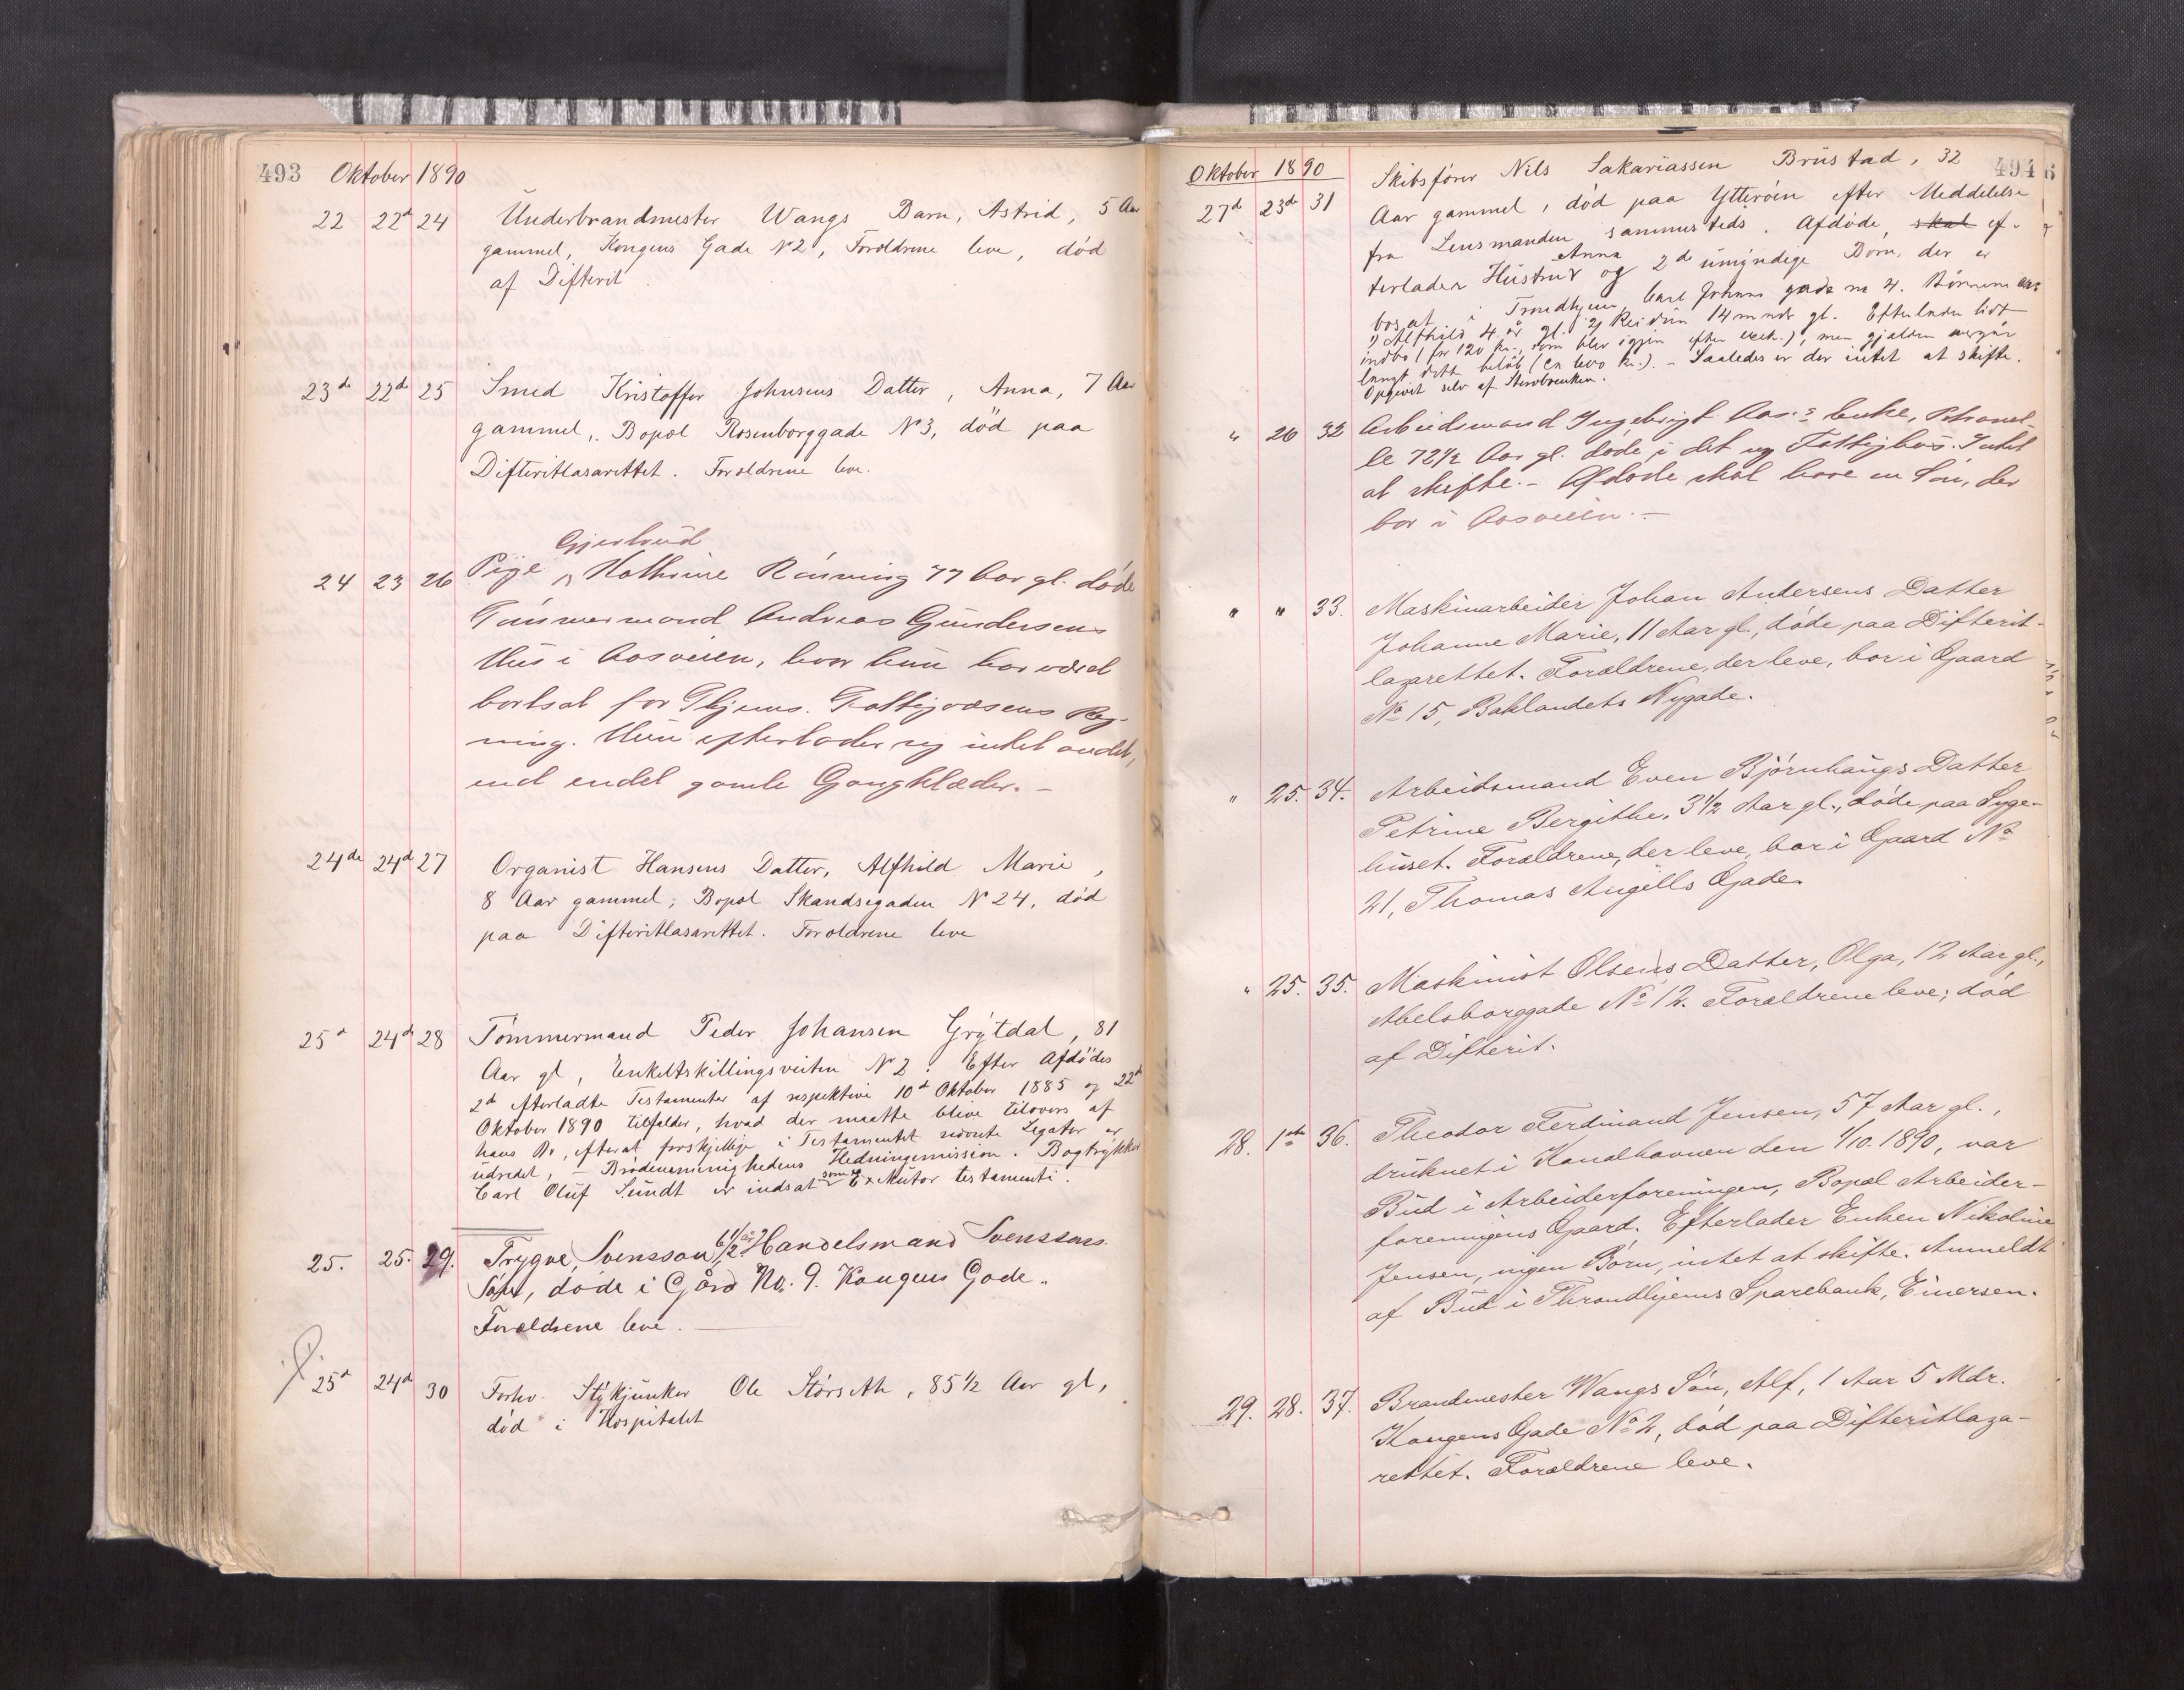 493 Oktober 1890
22 22d 24 Underbrandmester Wangs Barn, Astrid, 5 Aar
gammel, Kongens Gade N 2, Forældrene leve, död
af Difterit.
23de 22de 25 Smed Kristoffer Johnsens Datter, Anna, 7 Aar
gammel, Bopæl Rosenborggade N 3, död paa
Difteritlasarettet. Forældrene leve.
Gjertrud
24 23 26 Pige Kathrine Rönning 77 Aar gl. döde
Tömmermand Andreas Gundersens
Hus i Aasveien, hvor hun har været
bortsat for Thjems. Fattigvæsens Reg-
ning. Hun efterlader sig intet andet,
end endel gamle Gangklæder. -
24de 24d 27 Organist Hansens Datter, Alfhild Marie,
8 Aar gammel, Bopæl Skandsegaden N 24, död
paa Difteritlasarettet. Forældrene leve
25d 24de 28 Tömmermand Peder Johansen Grytdal, 81
Aar gl, Enkeltskillingsveiten N 2. Efter Afdödes
2de efterladte Testamenter af respektive 10de Oktober 1885 og 22de
Oktober 1890 tilfalder, hvad der maatte blive tilovers af
hans Bo, efterat forskjellige i Testamentet nævnte Legater er
udredet, - Brödremenighedens Hedningemission. Bogtrykker
Carl Oluf Sundt er indsat som Exekutor testamenti.
25. 25. 29. Trygve Svensson, 6 1/2 år, Handelsmand Svenssons
Sön, döde i Gård No. 9. Kongens Gade.
Forældrene leve.
25d 24d 30 Forhv. Stykjunker Ole Störseth, 85 1/2 Aar gl,
död i Hospitalet
Oktober 1890 494
27d 23de 31 Skibsförer Nils Sakariassen Brustad, 32
Aar gammel, död paa Ytteröen efter Meddelelse
fra Lensmanden sammesteds. Afdöde skal ef-
terlader Hustru Anna og 2de umyndige Börn, der er
bosat i Trondhjem, Carl Johans gade no 4. Börnene ere:
1) Alfhild 4 år gl. 2) Reidun 14 mndr gl. Efterlader lidt
indbo (for 120 kr., som blev igjen efter exek.), men gjælden overgår
langt dette beløb (ca 600 kr.). - Saaledes er der intet at skifte.
Opgivet selv af Stervboenken.
" 26 32 Arbeidsmand Ingebrigt Aas's Enke, Petronel-
le 72 1/2 Aar gl. döde i det ny Fattighus. Intet
at skifte. - Afdöde skal have en Sön, der
bor i Aasveien. -
" " 33. Maskinarbeider Johan Andersens Datter
Johanne Marie, 11 Aar gl., döde paa Difterit-
lazarettet. Forældrene, der leve, bor i Gaard
No 15, Baklandets Nygade.
" 25. 34. Arbeidsmand Even Björnhaugs Datter
Petrine Bergithe, 3 1/2 Aar gl., döde paa Syge-
huset. Forældrene, der leve, bor i Gaard No
21, Thomas Angells Gade.
" 25. 35. Maskinist Olsens Datter, Olga, 12 Aar gl.,
Abelsborggade No 12. Forældrene leve; död
af Difterit.
28. 1ste 36. Theodor Ferdinand Jensen, 57 Aar gl.,
druknet i Kanalhavnen den 1/10. 1890, var
Bud i Arbeiderforeningen, Bopæl Arbeider-
foreningens Gaard. Efterlader Enken Nikoline
Jensen, ingen Börn, intet at skifte. Anmeldt
af Bud i Throndhjems Sparebank, Einersen.
29. 28. 37. Brandmester Wangs Sön, Alf, 1 Aar 5 Mdr.
Kongens Gade No 2, död paa Difteritlaza-
rettet. Forældrene leve.